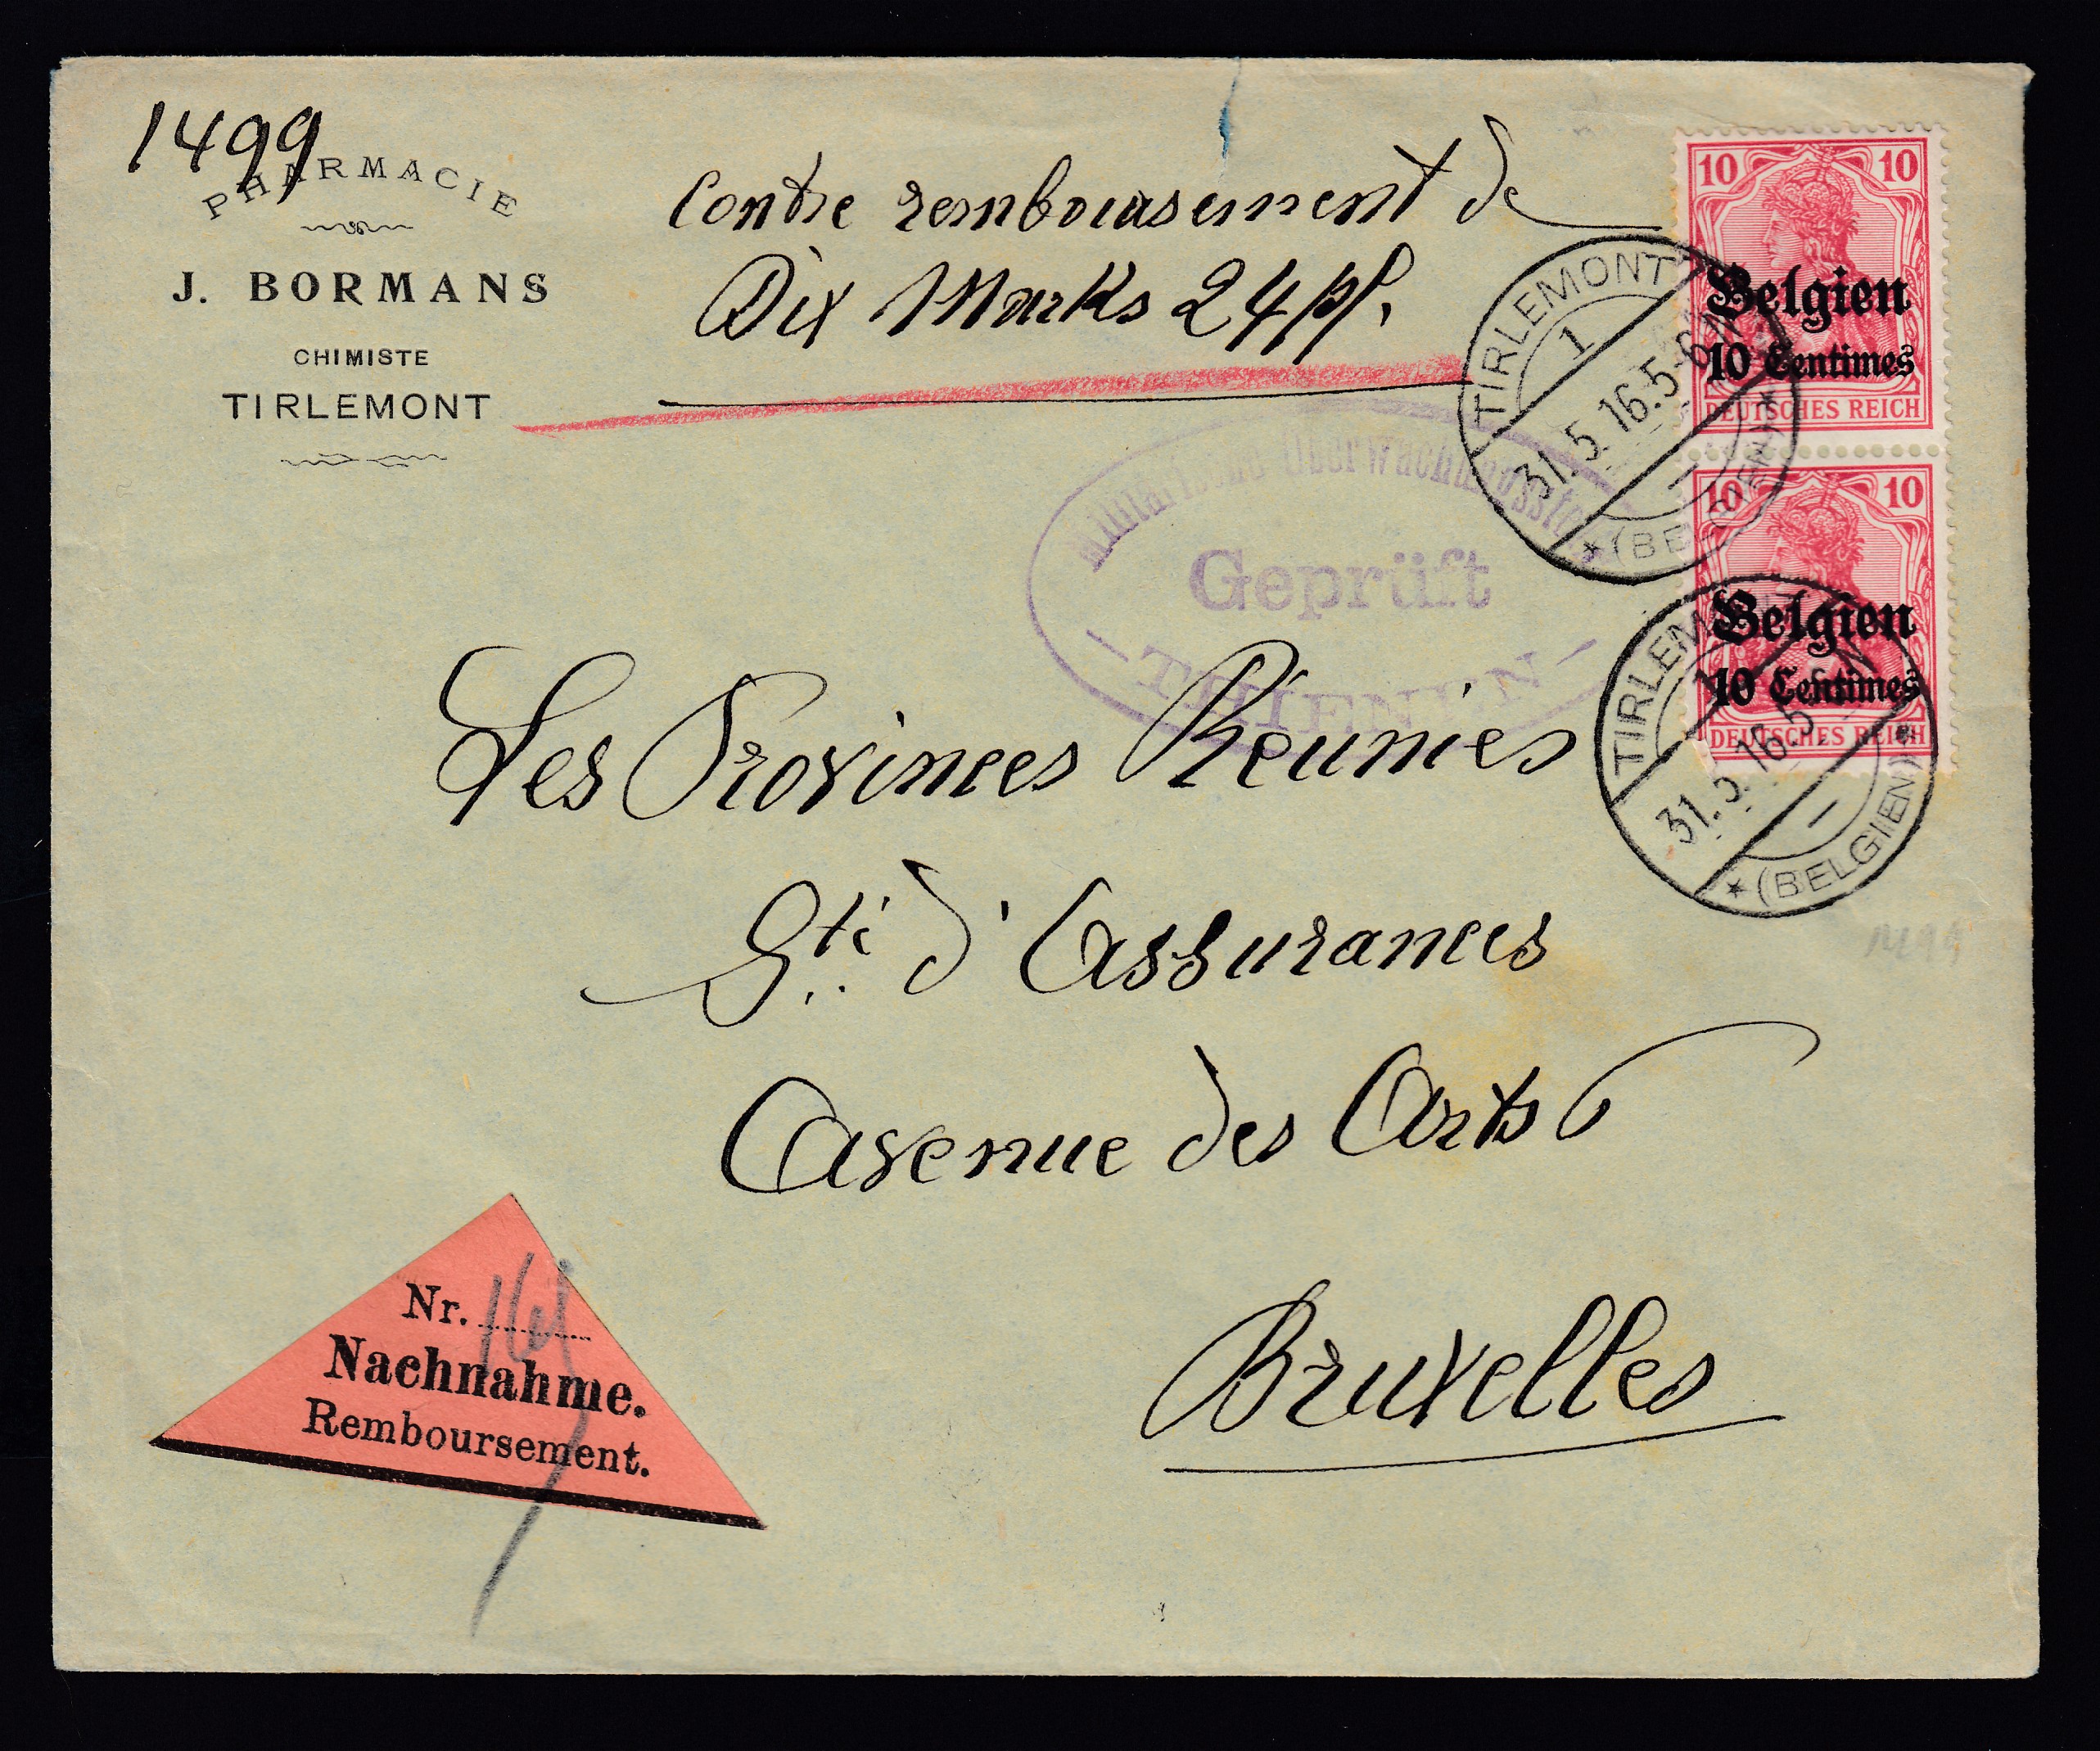 1499
PHARMACIE
J. BORMANS
CHIMISTE
TIRLEMONT
Contre remboursement de
Dix Marks 24 pf.
10 10
Belgien
10 Centimes
DEUTSCHES REICH
10 10
Belgien
10 Centimes
DEUTSCHES REICH
TIRLEMONT
1
31.5.16.5-6N
* (BELGIEN) *
TIRLEMONT
1
31.5.16.5
* (BELGIEN) *
Militärische Überwachungsstelle
Geprüft
— THIENEN —
Les Provinces Réunies
Sté d'Assurances
Avenue des Arts 6
Bruxelles
Nr.
Nachnahme.
Remboursement.